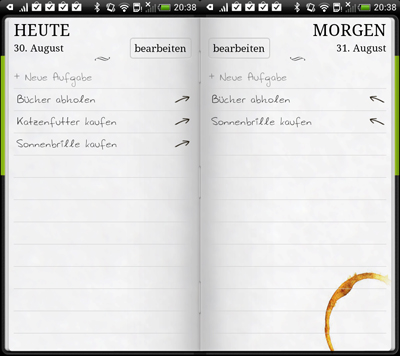 20:38
HEUTE
30. August
bearbeiten
+ Neue Aufgabe
Bücher abholen
Katzenfutter kaufen
Sonnenbrille kaufen
20:38
MORGEN
bearbeiten
31. August
+ Neue Aufgabe
Bücher abholen
Sonnenbrille kaufen